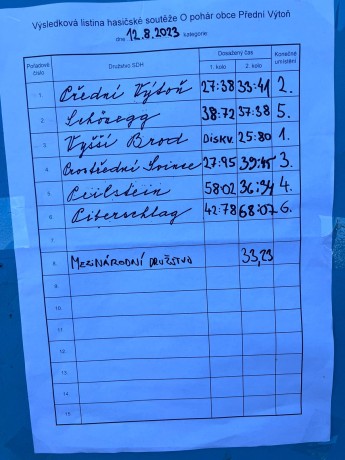 Výsledková listina hasičské soutěže O pohár obce Přední Výtoň
dne 12.8.2023 kategorie
Pořadové číslo Družstvo SDH Dosažený čas Konečné umístění
1. kolo 2. kolo
1. Přední Výtoň 27:38 33:41 2.
2. Schönegg 38:72 37:38 5.
3. Vyšší Brod DISKV. 25:80 1.
4. Prostřední Svince 27:95 39:45 3.
5. 58:02 36:34 4.
6. 42:78 68:07 6.
7.
8. MEZINÁRODNÍ DRUŽSTVO 33,23
9.
10.
11.
12.
13.
14.
15.